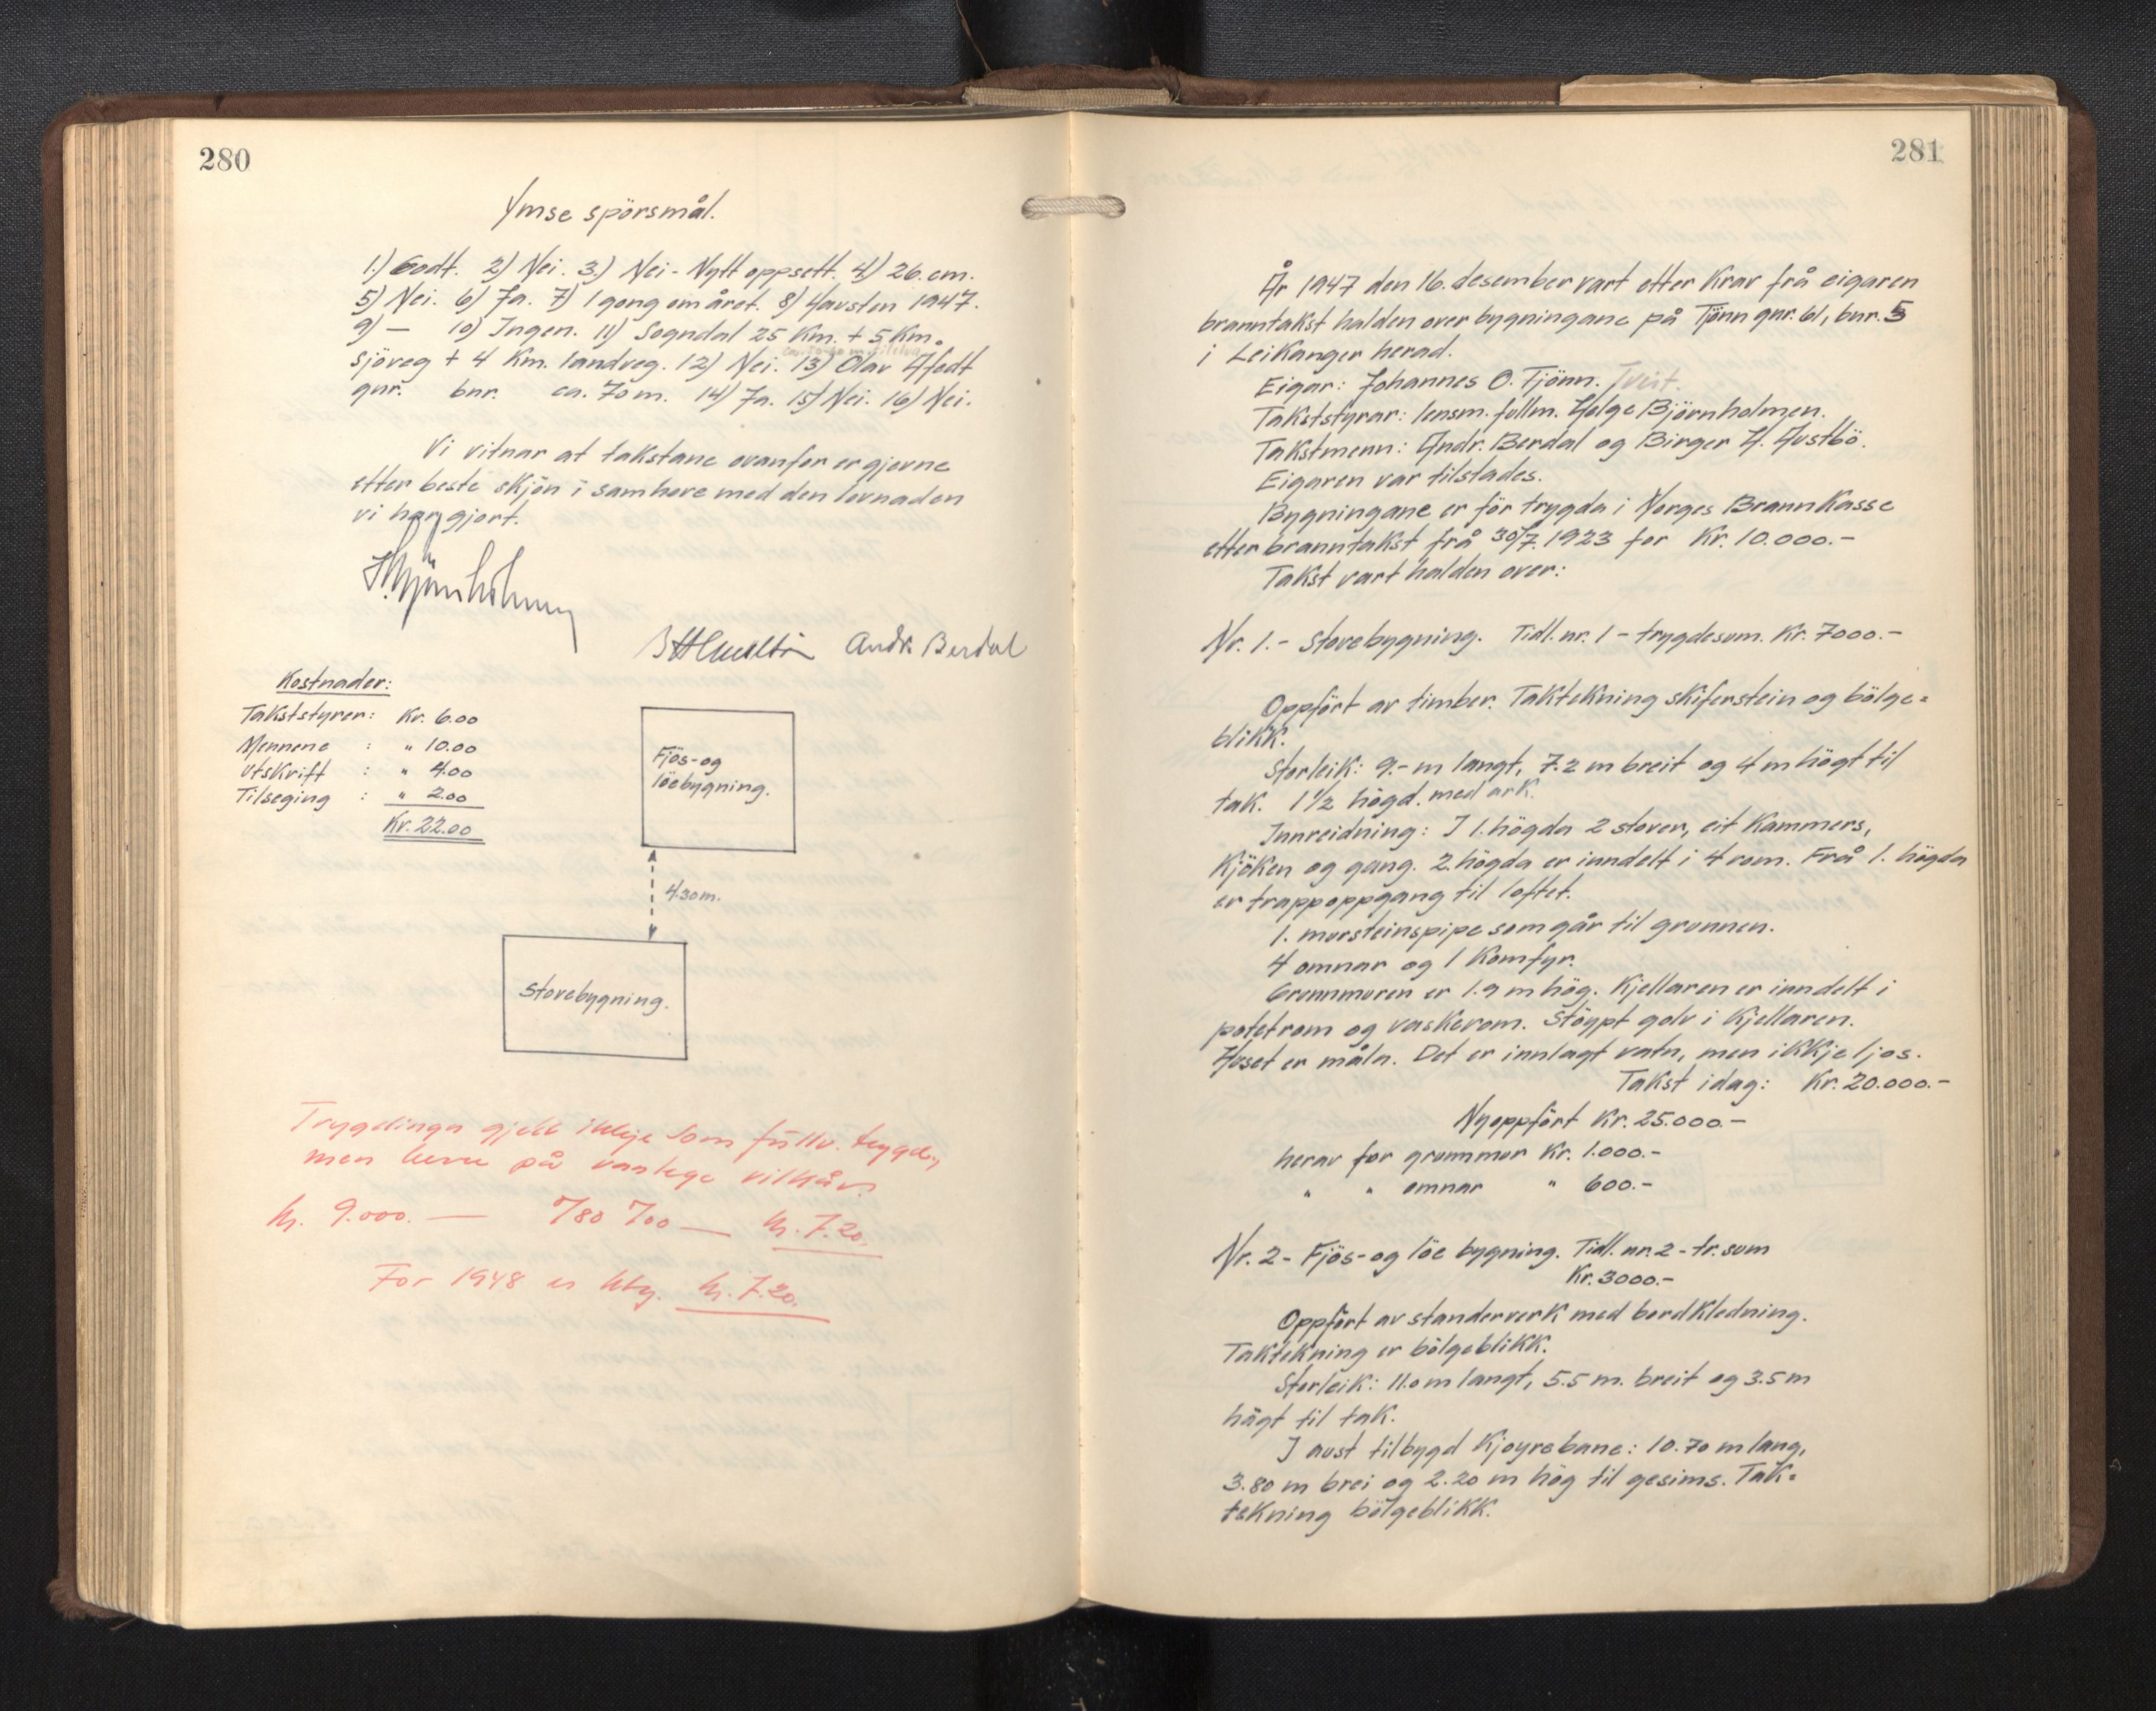 280
Ymse spörsmål.
1.) Godt. 2) Nei. 3.) Nei - Nytt oppsett. 4.) 26. cm.
5) Nei. 6) Ja. 7) 1 gong om året. 8) Hausten 1947.
9) — 10) Ingen. 11) Sogndal 25 Km. + 5 Km.
sjöveg + 4 Km. landveg. 12) Nei. 13) Olav Afedt
gnr. bnr. ca. 70 m. 14) Ja. 15) Nei. 16) Nei.
Vi vitnar at takstane ovanfor er gjevne
etter beste skjön i samhøve med den lovnaden
vi har gjort.
H. Björnholmen
Andr. Berdal
Kostnader:
Takststyrer: Kr. 6.00
Mennene : " 10.00
Utskrift : " 4.00
Tilseging : " 2.00
Kr. 22.00
Fjös- og
löebygning.
4.30 m.
Stovebygning.
Trygdinga gjeld ikkje som fullv. trygd.,
men berre på vanlege vilkår.
kr. 9.000. — kr. 7.20.
For 1948 er ktg. kr. 7.20.
281
År 1947 den 16. desember vart etter Krav frå eigaren
branntakst halden over bygningane på Tjönn gnr. 61, bnr. 5
i Leikanger herad.
Eigar: Johannes O. Tjönn. Tveit.
Takststyrar: lensm. fullm. Helge Björnholmen.
Takstmenn: Andr. Berdal og Birger H. Hustbö.
Eigaren var tilstades.
Bygningane er för trygda i Norges Brannkasse
etter branntakst frå 30/7. 1923 for Kr. 10.000.-
Takst vart halden over:
Nr. 1. - Stovebygning. Tidl. nr. 1 - trygdesum. Kr. 7000.-
Oppfört av timber. Taktekning skiferstein og bölge=
blikk.
Storleik: 9.- m langt, 7.2 m breit og 4 m högt til
tak. 1 1/2 högd. med ark.
Innreidning: I 1. högda 2 stover, eit Kammers,
Kjöken og gang. 2. högda er inndelt i 4 rom. Frå 1. högda
er trappoppgang til loftet.
1. mursteinspipe som går til grunnen.
4 omnar og 1 Komfyr.
Grunnmuren er 1.9 m hög. Kjellaren er inndelt i
potetrom og vaskerom. Stöypt golv i Kjellaren.
Huset er måla. Det er innlagt vatn, men ikkje ljos.
Takst idag: Kr. 20.000.-
Nyoppfört Kr. 25.000.-
herav for grunnmur Kr. 1.000.-
" " omnar " 600.-
Nr. 2 - Fjös- og löe bygning. Tidl. nr. 2 - tr. sum
Kr. 3000.-
Oppfört av standerverk med bordkledning.
Taktekning er bölgeblikk.
Storleik: 11.0 m langt, 5.5 m. breit og 3.5 m
högt til tak.
I aust tilbygd Kjøyrebane: 10.70 m lang,
3.80 m brei og 2.20 m hög til gesims. Tak=
tekning bölgeblikk.